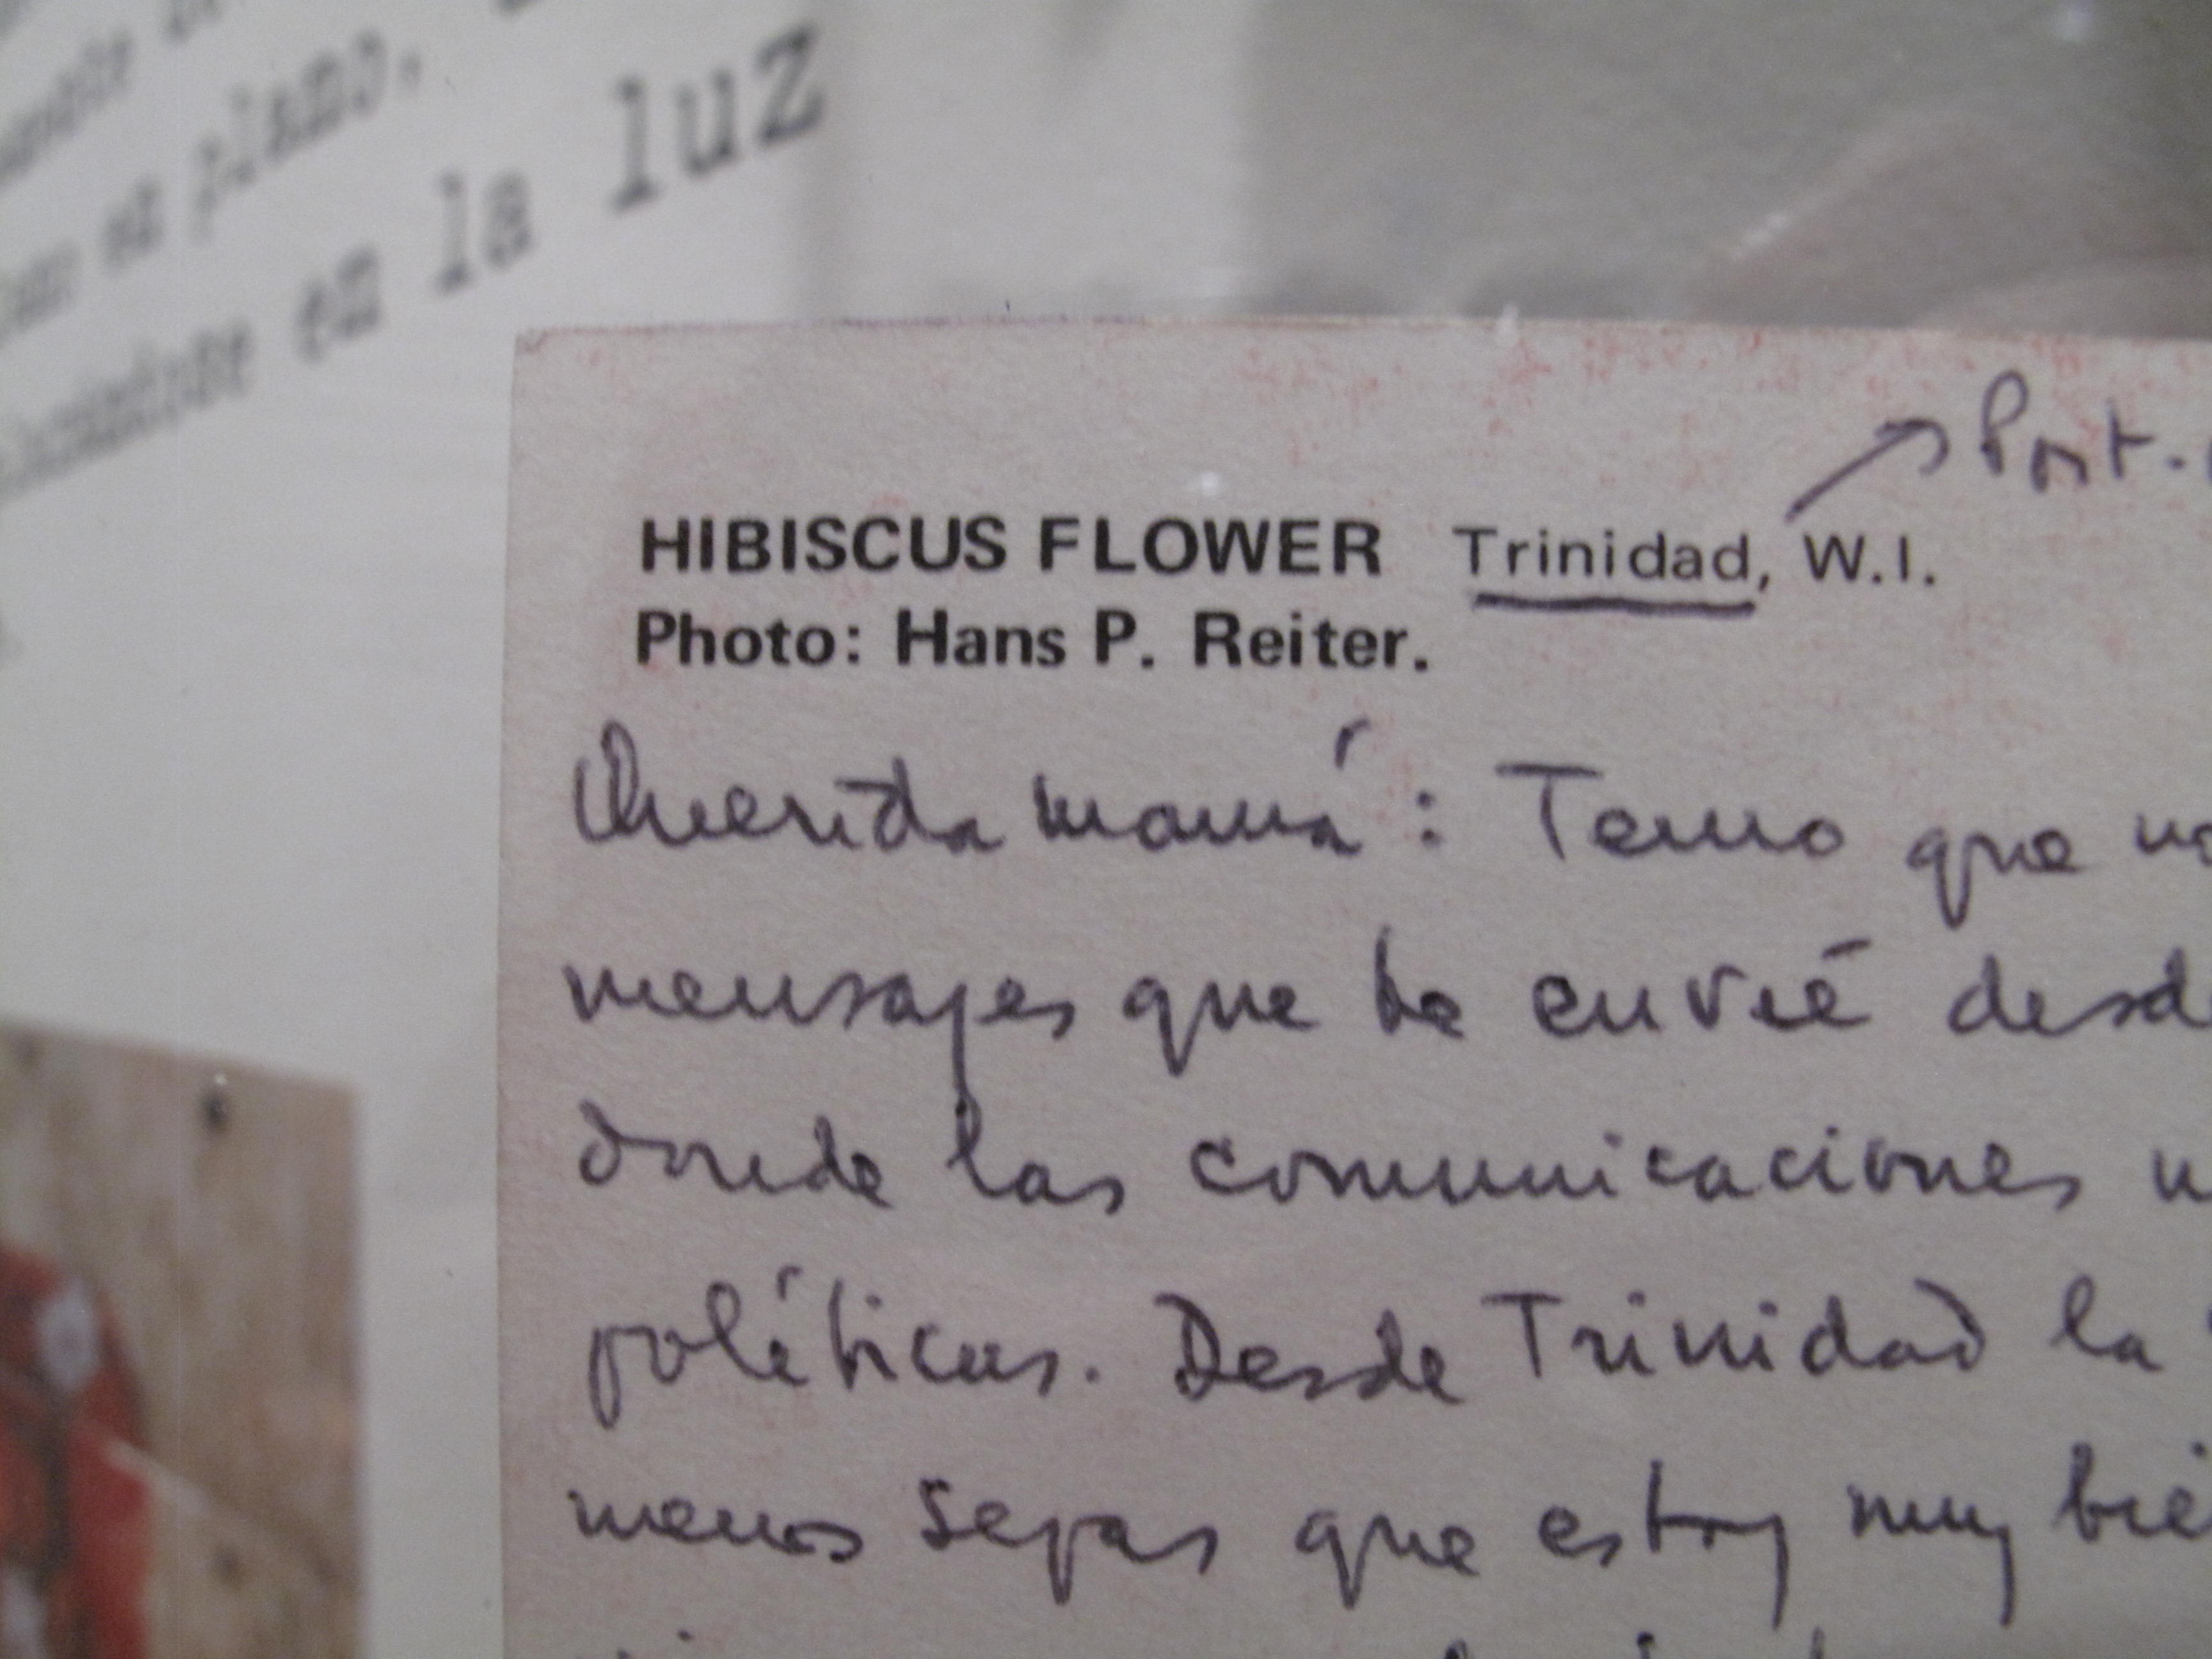 en plano.
en la luz
Port.
HIBISCUS FLOWER Trinidad, W.I.
Photo: Hans P. Reiter.
Querida mamá: Temo que
mensajes que te envié desd
donde las comunicaciones
políticas. Desde Trinidad la
menos sepas que estoy muy bie